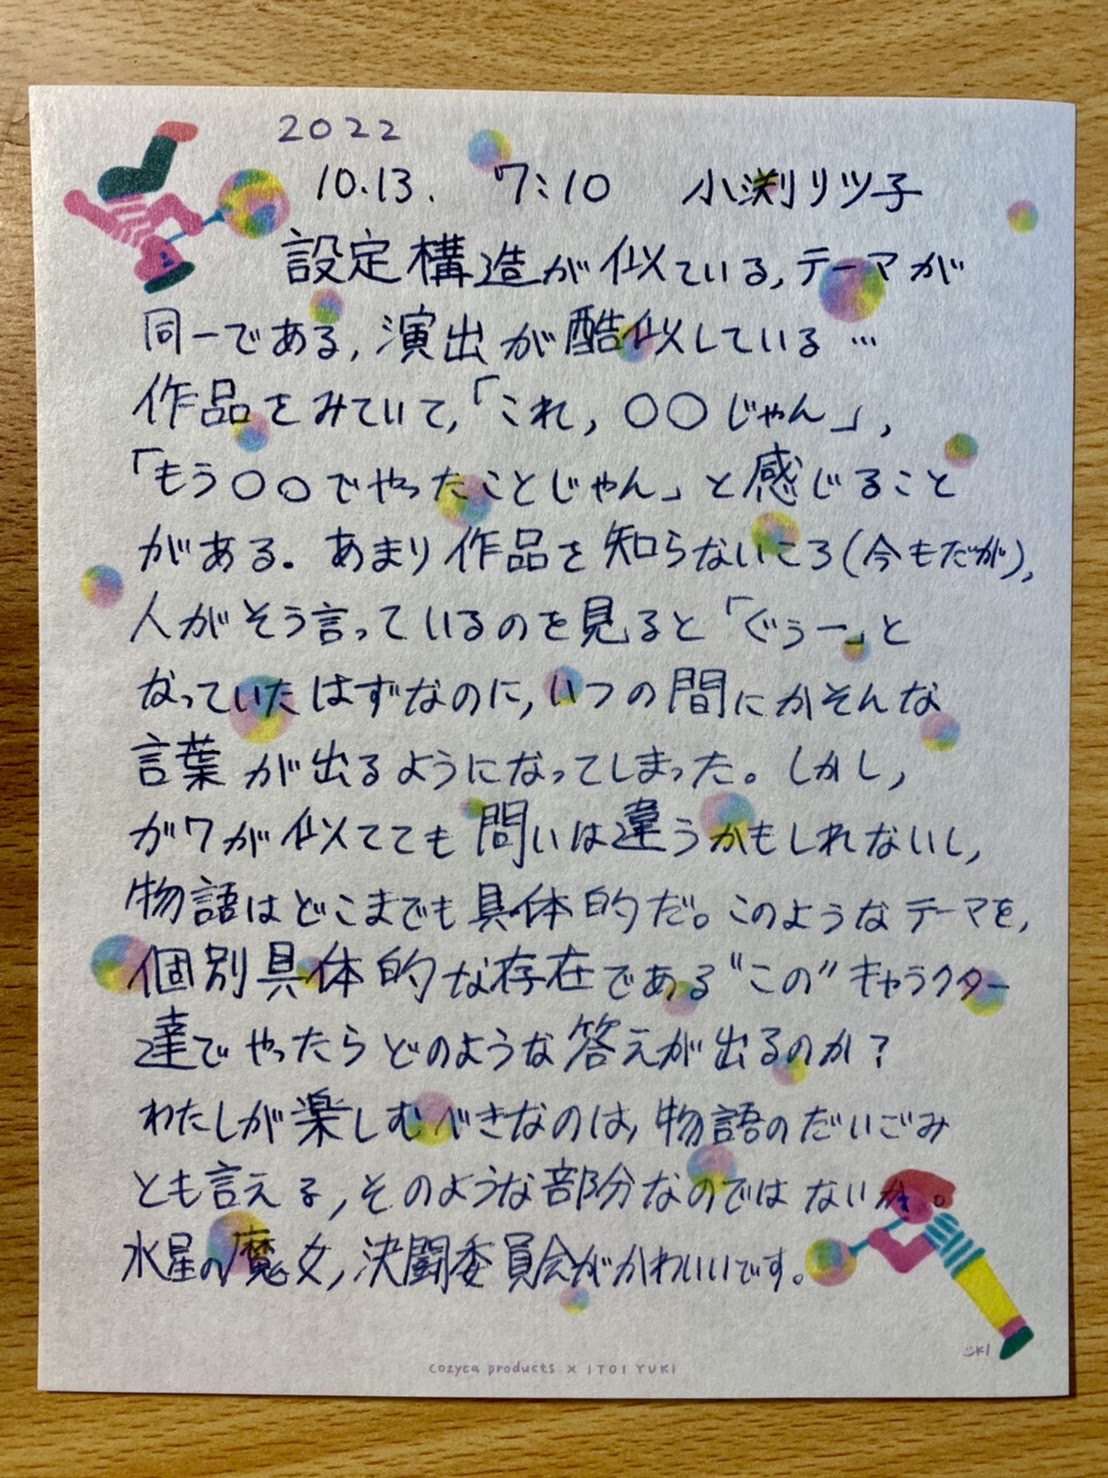 2022
10.13. 7:10 小渕リツ子
設定構造が似ている,テーマが
同一である,演出が酷似している…
作品をみていて,「これ,〇〇じゃん」,
「もう〇〇でやったことじゃん」と感じること
がある。あまり作品を知らないころ(今もだが),
人がそう言っているのを見ると「ぐぅー」と
なっていたはずなのに,いつの間にかそんな
言葉が出るようになってしまった。しかし,
ガワが似てても問いは違うかもしれないし,
物語はどこまでも具体的だ。このようなテーマを,
個別具体的な存在である"この"キャラクター
達でやったらどのような答えが出るのか?
わたしが楽しむべきなのは,物語のだいごみ
とも言える,そのような部分なのではないか。
水星の魔女,決闘委員会がかわいいです。
UKI
cozyca products × ITOI YUKI